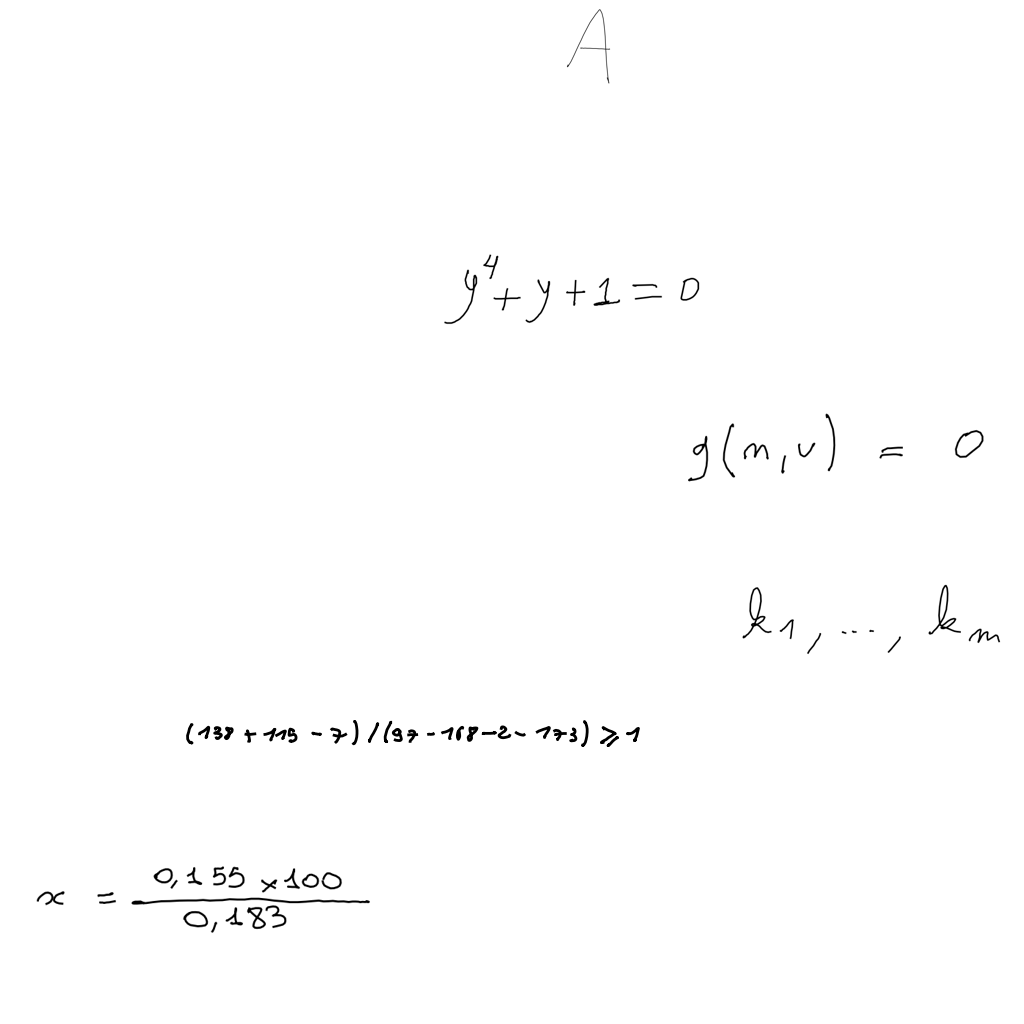 A
y⁴+y+1=0
g(n,v) = 0
k₁, ..., kₘ
(138+119-7)/(97-168-2-173)⩾1
x = \frac{0,155×100}{0,183}